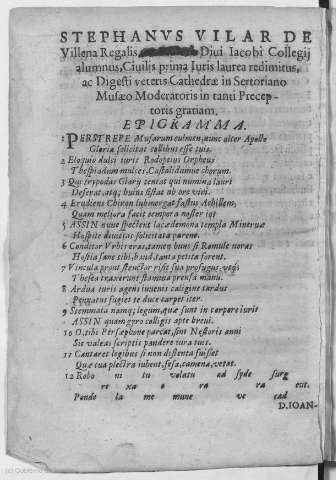 STEPHANVS VILAR DE
Villena Regalis, Diui Iacobi Collegij
alumnus, Ciuilis prima Iuris laurea redimitus,
ac Digesti veteris Cathedræ in Sertoriano
Musæo Moderatoris in tanti Precep-
toris gratiam.
EPIGRAMMA.
1 PERSTREPE Musarum culmen, nunc alter Apollo
Gloria solicitat collibus esse tuis.
2 Eloquio dulci iuris Rodopeius Orpheus
Thespiadum mulces, Castalidumue chorum.
3 Qui trypodas Clarij tentat qui numina lauri
Deserat, atq; huius fistat ab ore vini.
4 Erudiens Chiron iubmergat fastus Achillem,
Quam meliora facit tempora noster
5 ASSIN eum spectent lacædemona templa Mineruæ
Hospite diuitias solicitata parem.
6 Conditor Vrbis eras, tamen huns si Romule noras
Hostia sane tibi, haud tanta petita forent.
7 Vincula pront structor risit sua profugus,
Thesea traxerunt stamina prensa manu.
8 Ardua turis agens iuuenis caligine tardus
Pennatus fugiet te duce carpet iter.
9 Stemmata namq; legum, quæ sunt in corpore iuris
ASSIN quam pro colligis apte breui.
10 O, tibi Persephone parcat, sint Nestoris anni
Sic valeas scriptis pandere iura tuis.
11 Cantaret legibus si non dissenta fuisset
Quæ tua plectra iubent, fesa, camena, vetat.
12 Robo ni tu volatu ad spde surg
re xa o ra ra eut.
Pando la me mune ve cad
D. IOAN-
(c) Gobierno